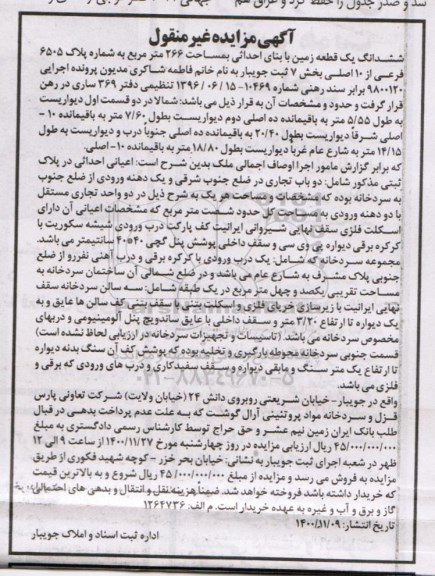 شد و صدر جدول را حفظ کرد و عراق هم
آگهی مزایده غیر منقول
ششدانگ یک قطعه زمین با بنای احداثی بمساحت ۲۶۶ متر مربع به شماره پلاک ۶۵۰۵
فرعی از ۱۰ اصلی بخش ۷ ثبت جویبار به نام خانم فاطمه شاکری مدیون پرونده اجرایی
۹۸۰۰۱۲۰ برابر سند رهنی شماره ۱۰۴۶۹- ۱۵ / ۰۶ / ۱۳۹۶ تنظیمی دفتر ۳۶۹ ساری در رهن
قرار گرفت و حدود و مشخصات آن به قرار ذیل می باشد: شمالا در دو قسمت اول دیواریست
به طول ۵/۵۵ متر به باقیمانده ده اصلی دوم دیواریست بطول ۷/۶۰ متر به باقیمانده ۱۰ -
اصلی شرقاً دیواریست بطول ۲۰/۴۰ به باقیمانده ده اصلی جنوباً درب و دیواریست به طول
۱۴/۱۵ متر به شارع عام غرباً دیواریست بطول ۱۸/۸۰ متر به باقیمانده ۱۰- اصلی.
که برابر گزارش مامور اجرا اوصاف اجمالی ملک بدین شرح است: اعیانی احداثی در پلاک
ثبتی مذکور شامل: دو باب تجاری در ضلع جنوب شرقی و یک دهنه ورودی از ضلع جنوب
به سردخانه بوده که مشخصات و مساحت هر یک به شرح ذیل در دو واحد تجاری مستقل
با دو دهنه ورودی به مساحت کل حدود شصت متر مربع که مشخصات اعیانی آن دارای
اسکلت فلزی سقف نهایی شیروانی ایرانیت کف پارکت درب ورودی شیشه سکوریت با
کرکره برقی دیواره پی وی سی و سقف داخلی پوشش پنل گچی ۴۰*۴۰ سانتیمتر می باشد.
مجموعه سردخانه که شامل: یک درب ورودی با کرکره برقی و درب آهنی نفررو از ضلع
جنوبی پلاک مشرف به شارع عام می باشد و در ضلع شمالی آن ساختمان سردخانه به
مساحت تقریبی یکصد و چهل متر مربع در یک طبقه شامل: سه سالن سردخانه سقف
نهایی ایرانیت با زیرسازی خرپای فلزی و اسکلت بتنی با سقف بتنی کف سالن ها عایق و به
یک دیواره تا ارتفاع ۳/۲۰ متر و سقف داخلی با عایق ساندویچ پنل آلومینیومی و دربهای
مخصوص سردخانه می باشد. (تاسیسات و تجهیزات سردخانه در ارزیابی لحاظ نشده است)
قسمت جنوبی سردخانه محوطه بارگیری و تخلیه بوده که پوشش کف آن سنگ بدنه دیواره
تا ارتفاع یک متر سنگ و مابقی دیواره و سقف سفیدکاری و درب های ورودی که برقی و
فلزی می باشد.
واقع در جویبار - خیابان شریعتی روبروی دانش ۲۴ (خیابان ولایت) شرکت تعاونی پارس
قزل و سردخانه مواد پروتئینی آرال گوشت که به علت عدم پرداخت بدهی در قبال
طلب بانک ایران زمین نیم عشر و حق حراج توسط کارشناس رسمی دادگستری به مبلغ
۴۵/۰۰۰/۰۰۰/۰۰۰ ریال ارزیابی مزایده در روز چهارشنبه مورخ ۱۴۰۰/۱۱/۲۷ از ساعت ۹ الی ۱۲
ظهر در شعبه اجرای ثبت جویبار به نشانی: خیابان بحر خزر - کوچه شهید فکوری از طریق
مزایده به فروش می رسد و مزایده از مبلغ ۴۵/۰۰۰/۰۰۰/۰۰۰ ریال شروع و به بالاترین قیمت
که خریدار داشته باشد فروخته خواهد شد. ضمناً هزینه نقل و انتقال و بدهی های احتمالی
گاز و برق و آب و غیره به عهده خریدار است. م الف: ۱۲۶۴۷۳۶
تاریخ انتشار: ۱۴۰۰/۱۱/۰۹
اداره ثبت اسناد و املاک جویبار
۰۲۱-۸۸۳۴۹۶۷۰-۵